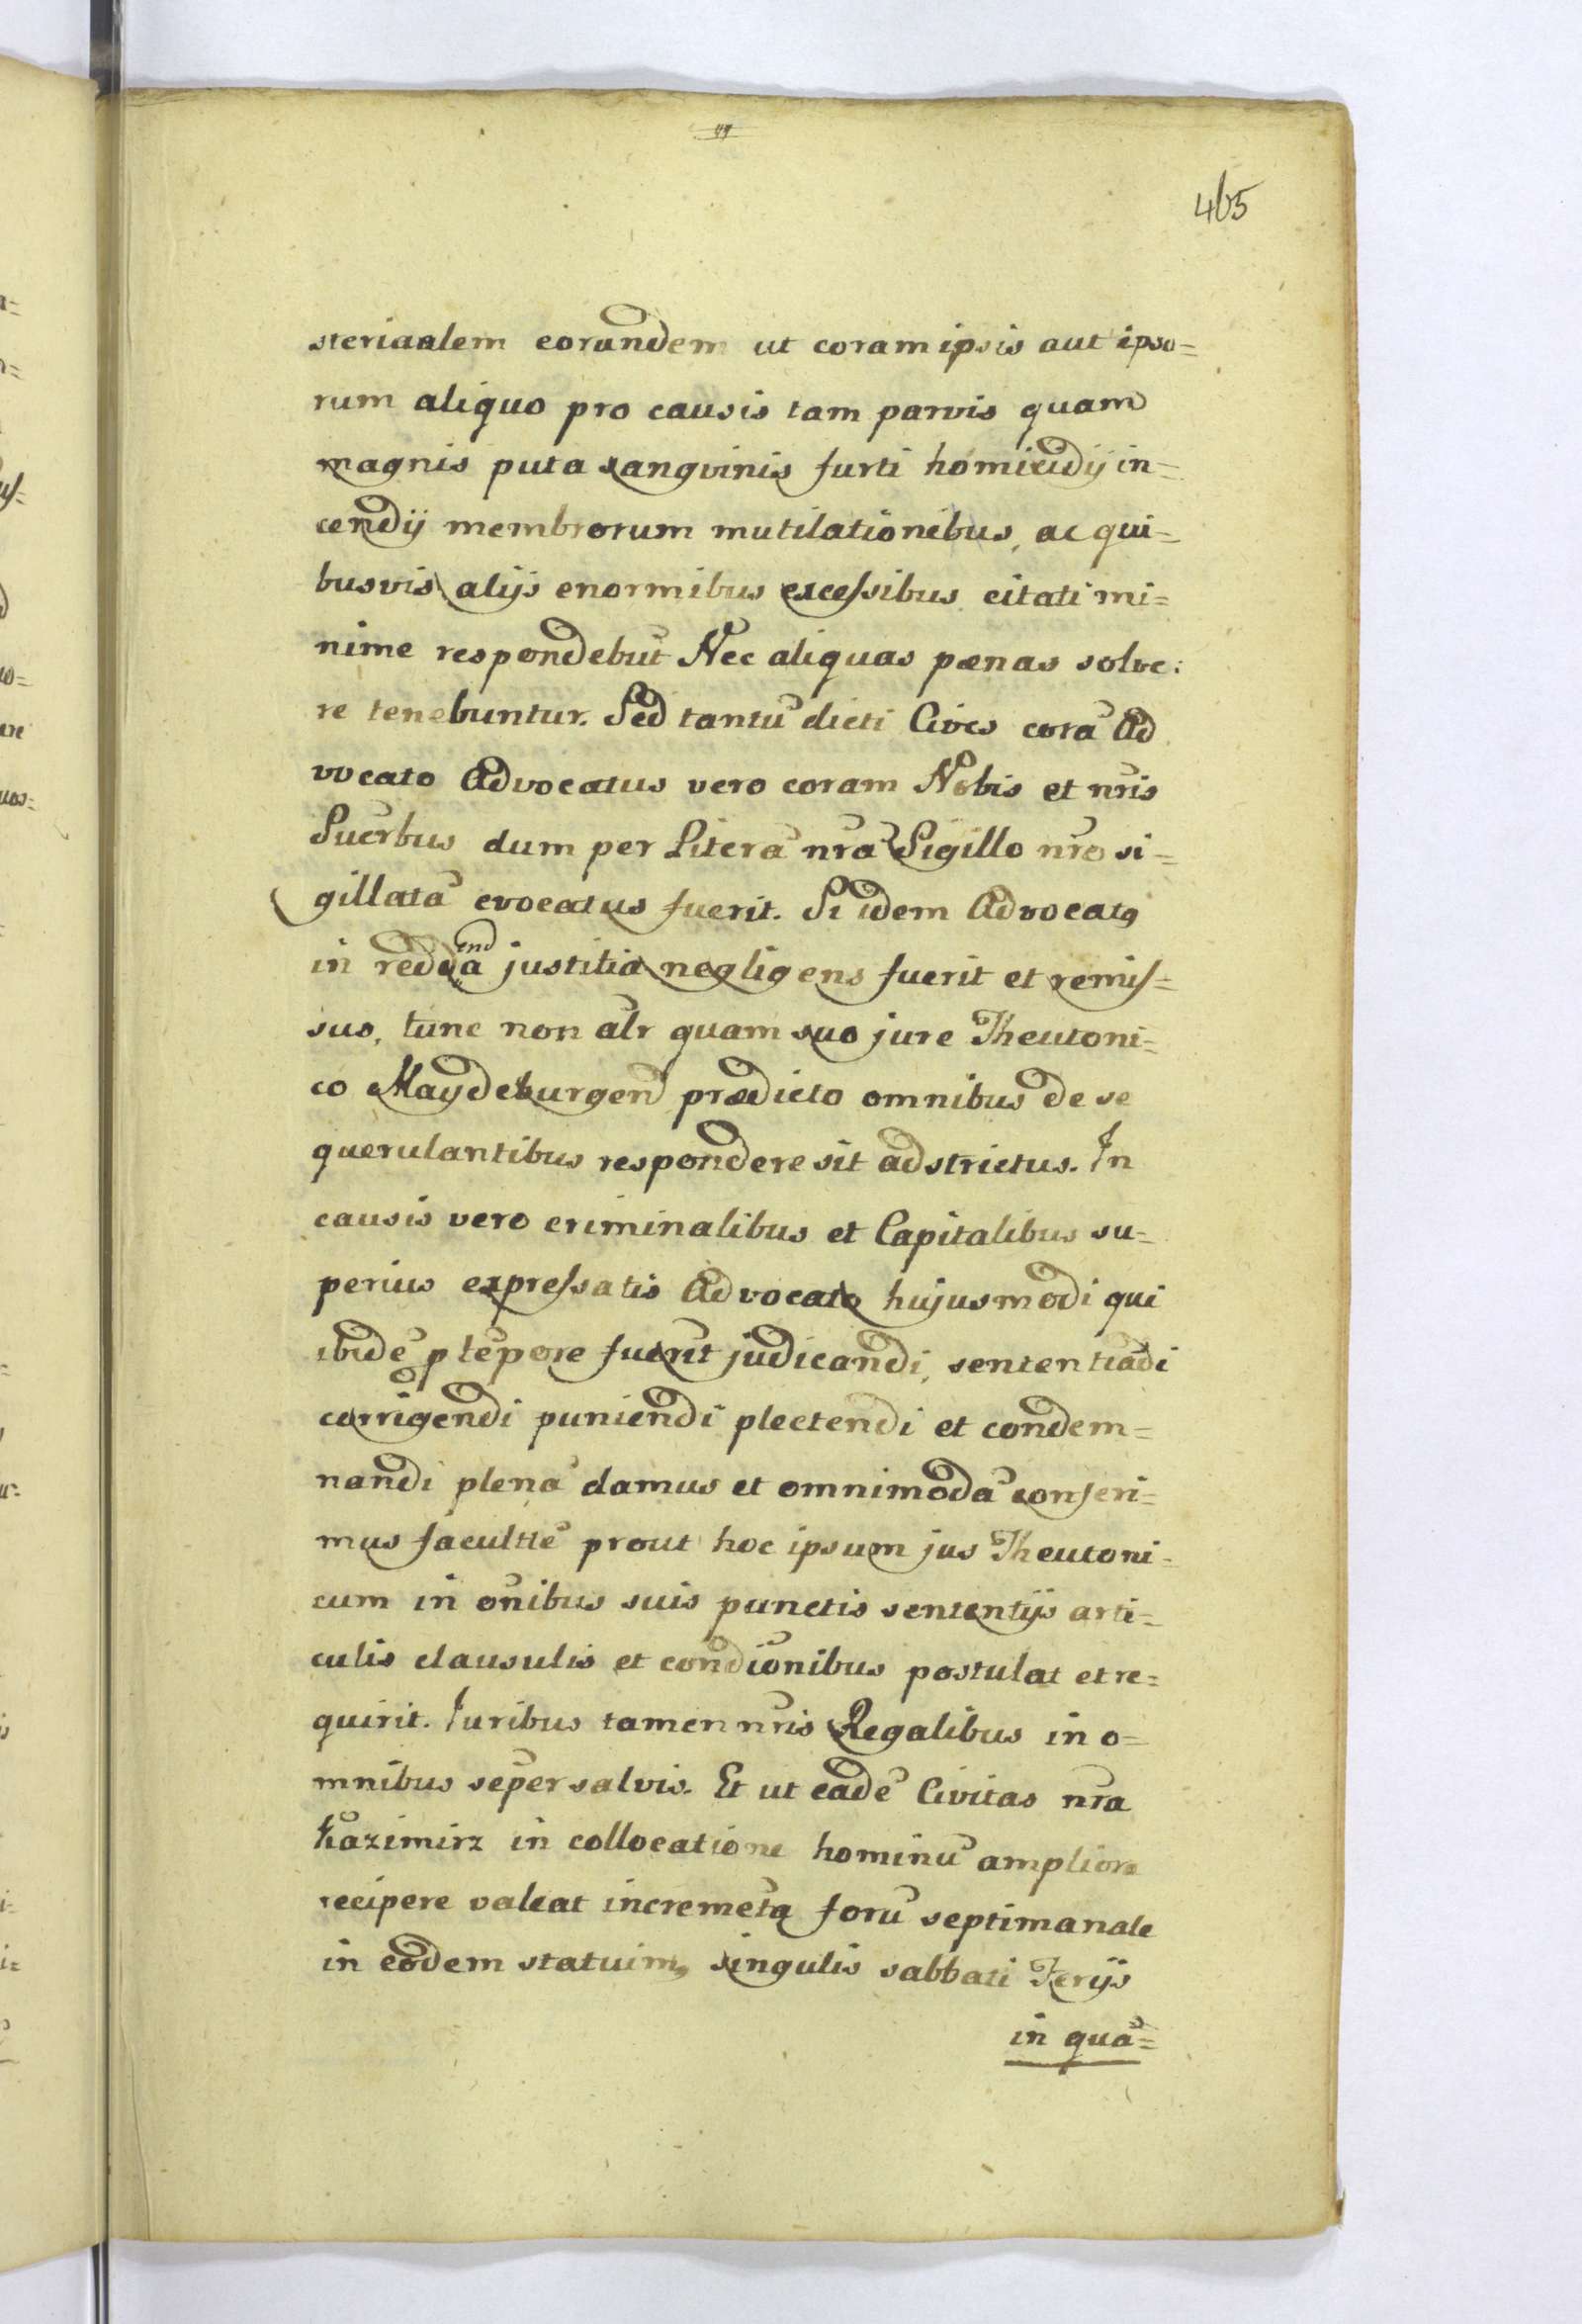 465
steriaalem eorundem ut coram ipsis aut ipso=
rum aliquo pro causis tam parvis quam
magnis puta sangvinis furti homicidij in=
cendij membrorum mutilationibus, ac qui=
busvis alijs enormibus excessibus citati mi=
nime respondebūt Nec aliquas pœnas solve:
re tenebuntur. Sed tantū dicti Cives corā Ad
vocato Advocatus vero coram Nobis et nr̃is
Sucrbus dum per Literā nrā Sigillo nr̃o si=
gillatā evocatus fuerit. Si idem Advocatꝰ
in reddendā justitia negligens fuerit et remis=
sus, tunc non alr quam suo jure Theutoni=
co Maydeburgen prædicto omnibus de se
querulantibus respondere sit adstrictus. In
causis vero criminalibus et Capitalibus su=
perius expressatis Advocato hujusmodi qui
ibidē p tēpore fuerit judicandi, sententiādi
corrigendi puniendi plectendi et condem=
nandi plenā damus et omnimodā conferi=
mus facultte prout hoc ipsum jus Theutoni=
cum in om̃ibus suis punctis sententijs arti=
culis clausulis et condĩonibus postulat et re=
quirit. Iuribus tamen nr̃is Regalibus in o=
mnibus sẽper salvis. Et ut eadē Civitas nr̃a
Kazimirz in collocatione hominū ampliora
recipere valeat incremẽta forū septimanale
in eodem statuimꝰ singulis sabbati Ferijs
in quā=